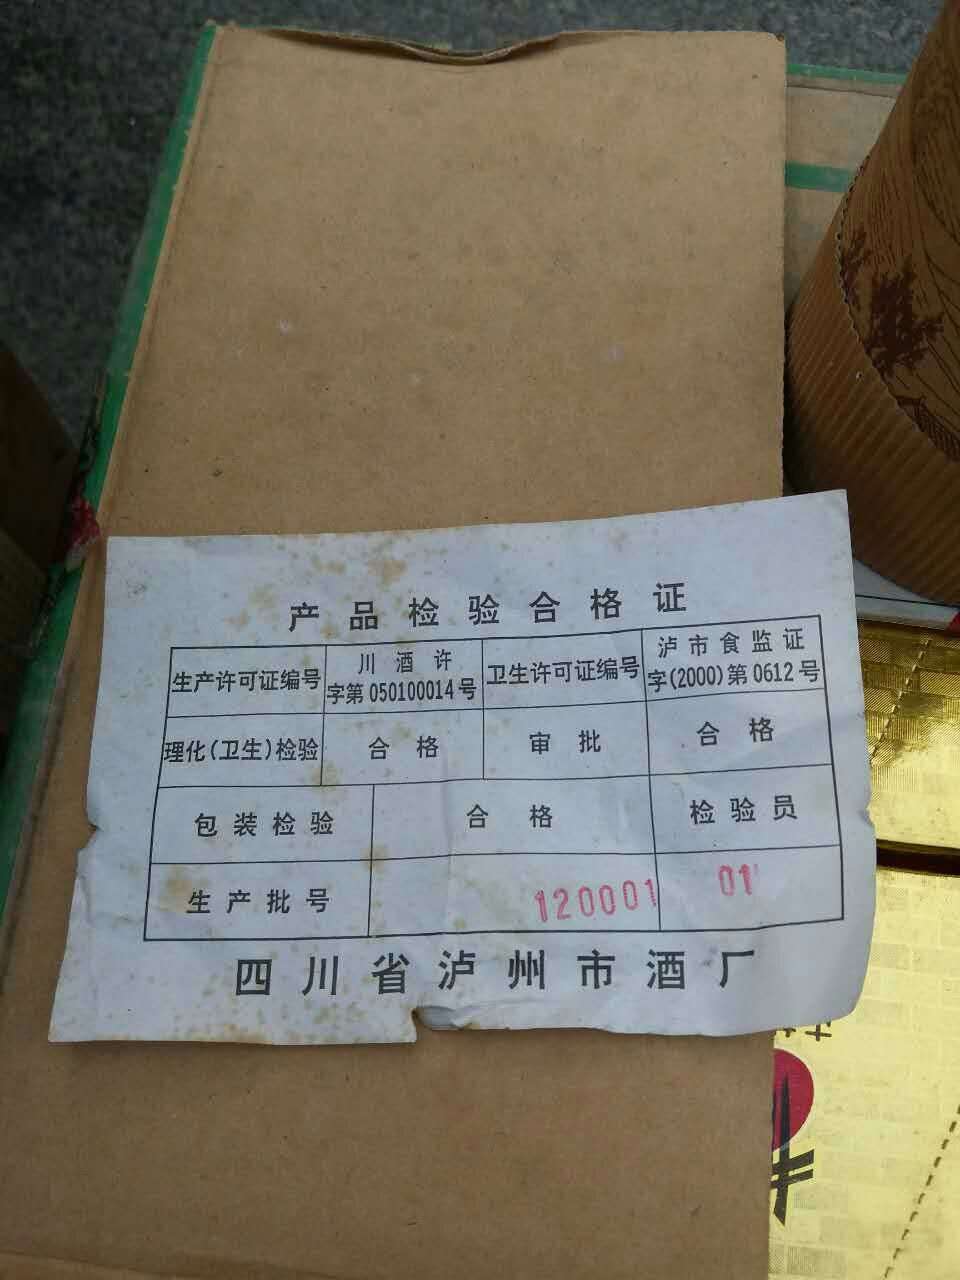 产品检验合格证
生产许可证编号 川酒许 卫生许可证编号 泸市食监证
字第050100014号 字(2000)第0612号
理化(卫生)检验 合格 审批 合格
包装检验 合格 检验员
生产批号 120001 01
四川省泸州市酒厂